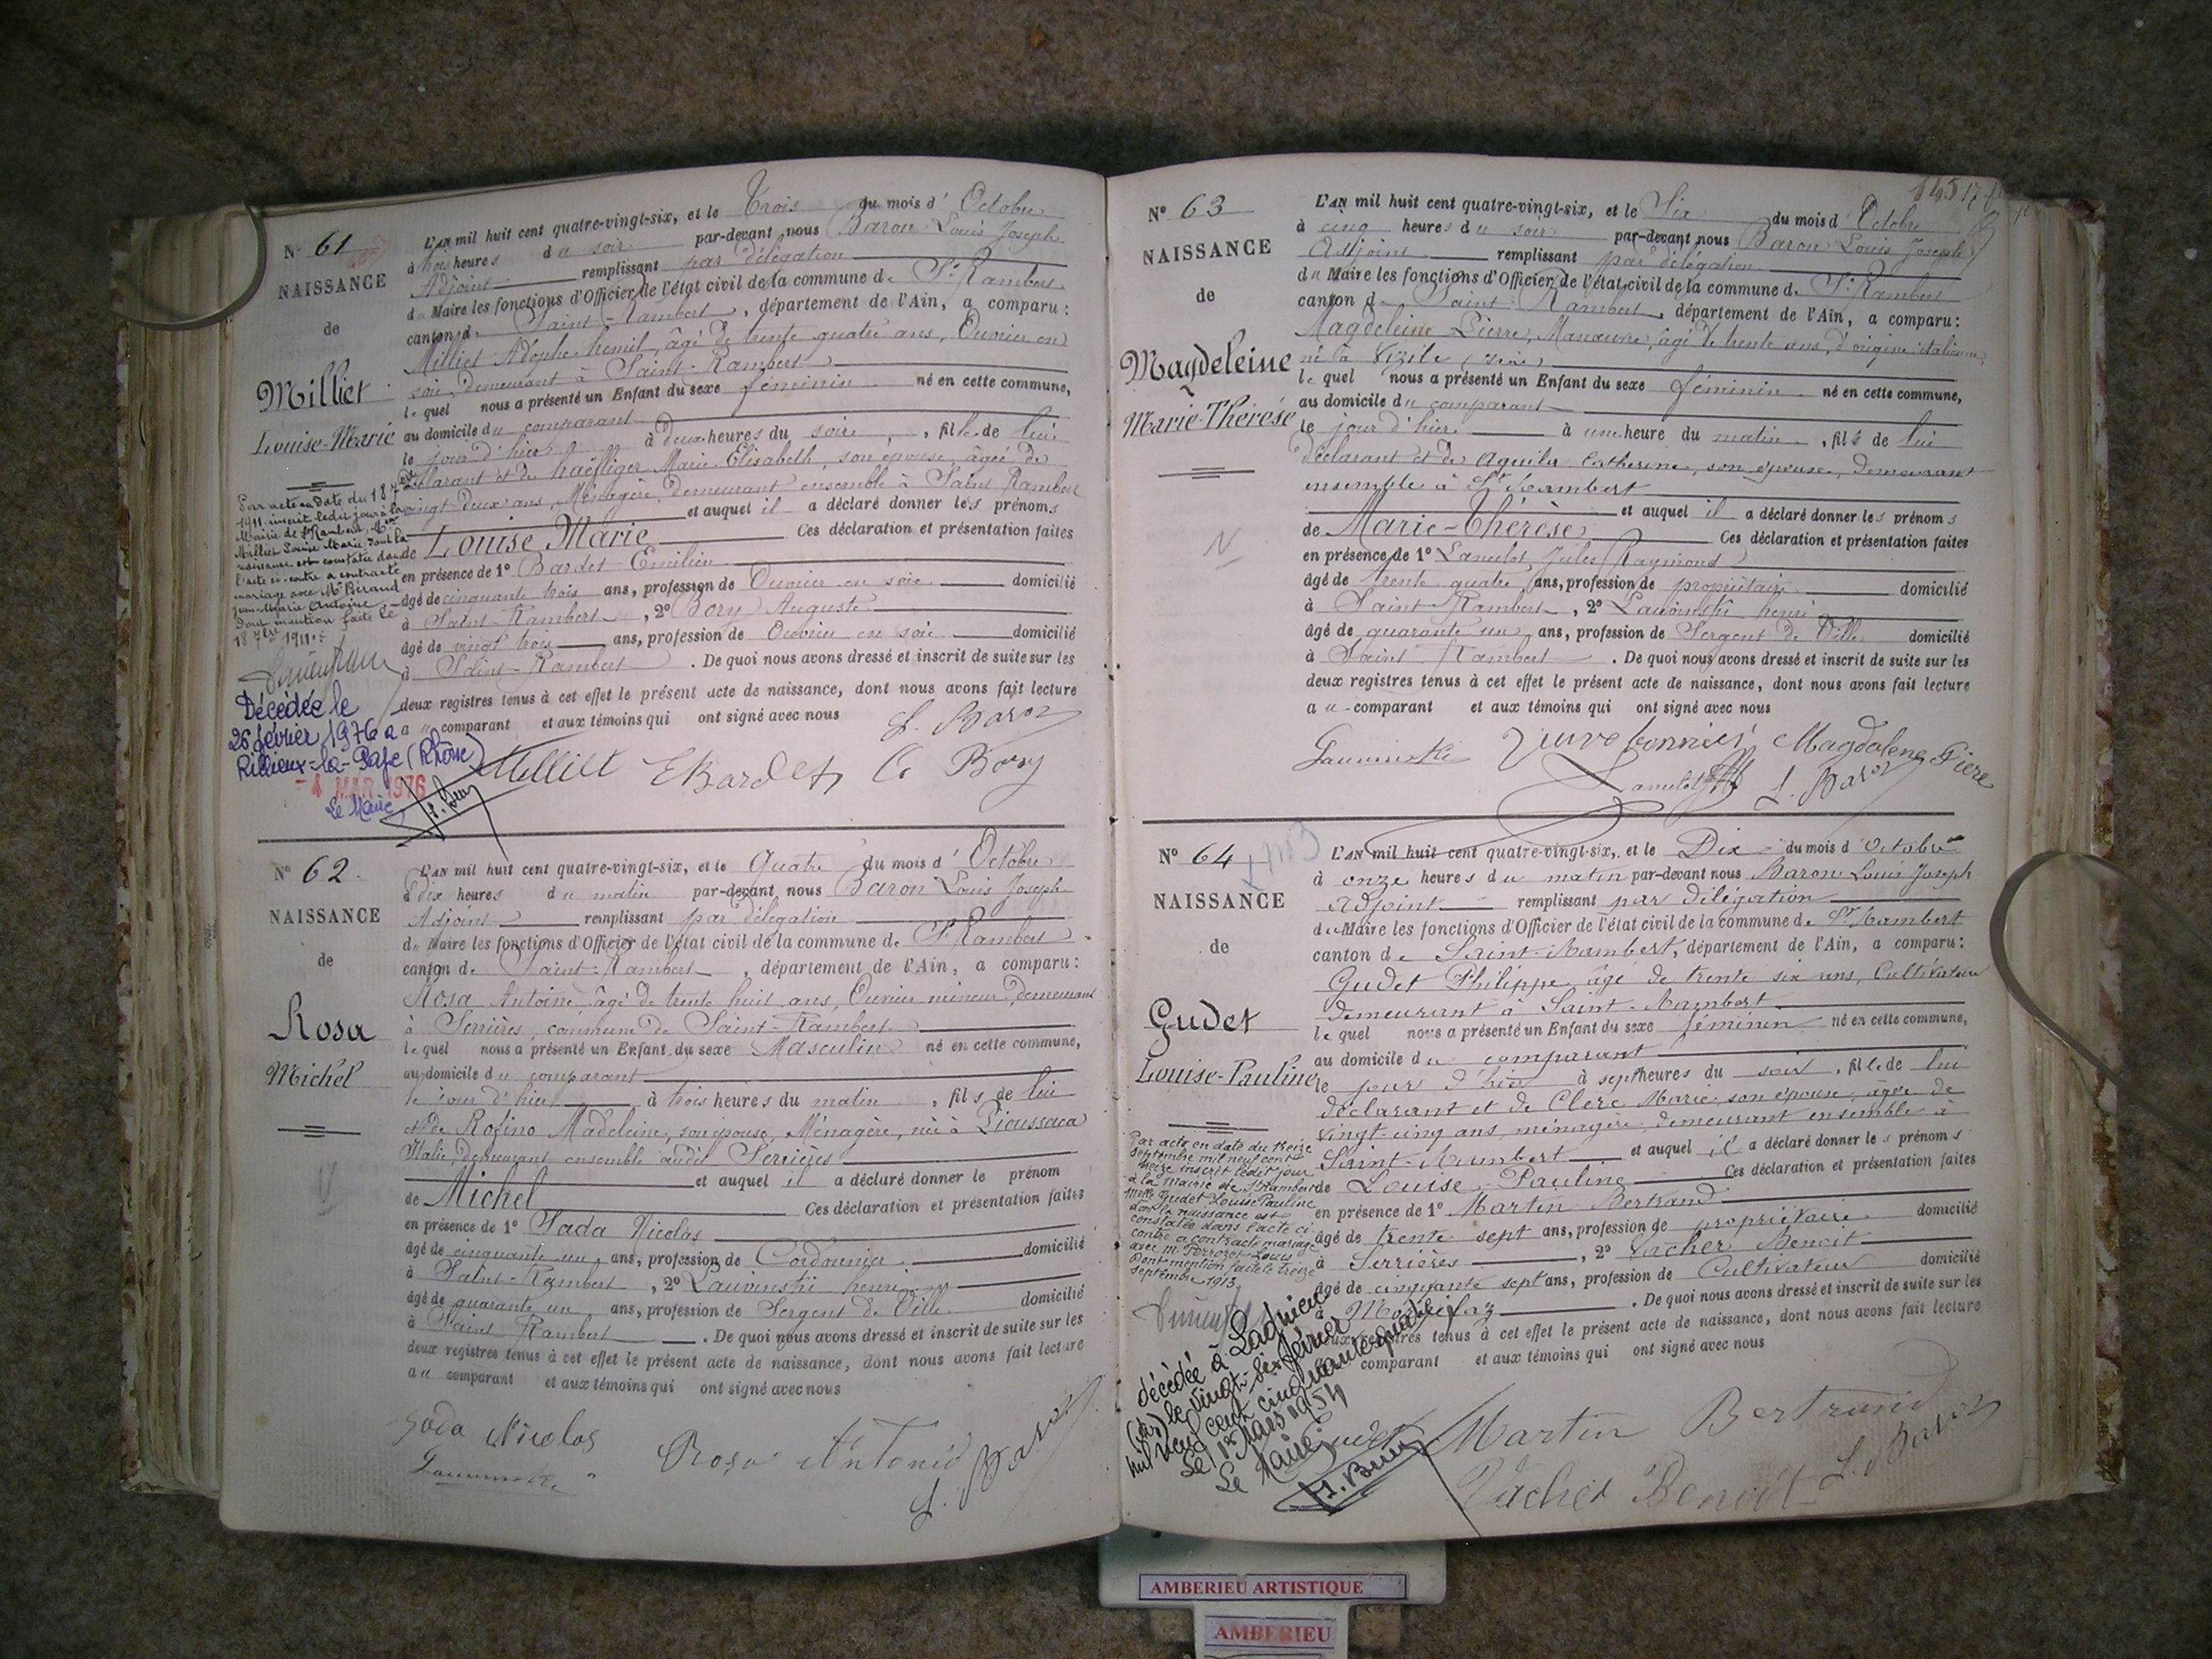 N° 61
NAISSANCE
de
Milliet
Louise-Marie
L'AN mil huit cent quatre-vingt-six, et le Trois du mois d' Octobre
à trois heures du soir par-devant nous Baron Louis Joseph
Adjoint remplissant par délégation
du Maire les fonctions d'Officier de l'état civil de la commune de St Rambert
canton de Saint-Rambert, département de l'Ain, a comparu:
Milliet Adophe , âgé de trente quatre ans, Ouvrier en
soie, demeurant à Saint-Rambert
lequel nous a présenté un Enfant du sexe féminin né en cette commune,
au domicile du comparant
le jour d'hier à deux heures du soir, fille de lui
déclarant et de haefliger Marie Elisabeth, son épouse, âgée de
vingt-deux ans, Ménagère, demeurant ensemble à Saint Rambert
et auquel il a déclaré donner les prénoms
de Louise Marie Ces déclaration et présentation faites
en présence de 1° Bardet Emilien
âgé de cinquante trois ans, profession de Ouvrier en soie domicilié
à Saint-Rambert, 2° Bory Auguste
âgé de vingt trois ans, profession de Ouvrier en soie domicilié
à Saint-Rambert. De quoi nous avons dressé et inscrit de suite sur les
deux registres tenus à cet effet le présent acte de naissance, dont nous avons fait lecture
au comparant et aux témoins qui ont signé avec nous
L. Baron
Milliet EBardet Bory
Par acte en date du 18 7bre
1911 inscrit ledit jour à la
Mairie de St Rambert, Melle
Milliet Louise Marie dont la
naissance est constatée dans
l'acte ci-contre a contracté
mariage avec Mr Béraud
Jean-Marie Antoine
Dont mention faite le
18 7bre 1911
Décédée le
26 février 1976 a
Rillieux-la-Pape (Rhône)
-4 MAR 1976
Le Maire
N° 62
NAISSANCE
de
Rosa
Michel
L'AN mil huit cent quatre-vingt-six, et le Quatre du mois d' Octobre
à dix heures du matin par-devant nous Baron Louis Joseph
Adjoint remplissant par délégation
du Maire les fonctions d'Officier de l'état civil de la commune de St Rambert
canton de Saint-Rambert, département de l'Ain, a comparu:
Rosa Antoine, âgé de trente huit ans, Ouvrier mineur demeurant
à Serrières, commune de Saint-Rambert
lequel nous a présenté un Enfant du sexe Masculin né en cette commune,
au domicile du comparant
le jour d'hier à trois heures du matin, fils de lui
et de Rofino Madeleine, son épouse, Ménagère, née à Pioussaca
Italie, demeurant ensemble audit Serrières
et auquel il a déclaré donner le prénom
de Michel Ces déclaration et présentation faites
en présence de 1° Sada Nicolas
âgé de cinquante un ans, profession de Cordonnier domicilié
à Saint-Rambert, 2° Lauvinski henri
âgé de quarante un ans, profession de Sergent de Ville domicilié
à Saint-Rambert. De quoi nous avons dressé et inscrit de suite sur les
deux registres tenus à cet effet le présent acte de naissance, dont nous avons fait lecture
au comparant et aux témoins qui ont signé avec nous
Sada Nicolas Rosa Antonio L. Baron
N° 63
NAISSANCE
de
Magdeleine
Marie-Thérèse
L'AN mil huit cent quatre-vingt-six, et le Six du mois d Octobre
à cinq heures du soir par-devant nous Baron Louis Joseph
Adjoint remplissant par délégation
du Maire les fonctions d'Officier de l'état civil de la commune de St Rambert
canton de Saint-Rambert, département de l'Ain, a comparu:
Magdeleine Pierre, Manœuvre, âgé de trente ans, d'origine italienne,
né à Vizile
lequel nous a présenté un Enfant du sexe féminin né en cette commune,
au domicile du comparant
le jour d'hier à une heure du matin, fils de lui
déclarant et de Aquiler Catherine, son épouse, demeurant
ensemble à St Rambert
et auquel il a déclaré donner les prénoms
de Marie-Thérèse Ces déclaration et présentation faites
en présence de 1° Lamelot Jules Raymond
âgé de trente quatre ans, profession de propriétaire domicilié
à Saint-Rambert, 2° Lauvinski henri
âgé de quarante un ans, profession de Sergent de Ville domicilié
à Saint Rambert. De quoi nous avons dressé et inscrit de suite sur les
deux registres tenus à cet effet le présent acte de naissance, dont nous avons fait lecture
au comparant et aux témoins qui ont signé avec nous
Magdalena Piere
L. Baron
N° 64
NAISSANCE
de
Gudet
Louise-Pauline
L'AN mil huit cent quatre-vingt-six, et le Dix du mois d Octobre
à onze heures du matin par-devant nous Baron Louis Joseph
adjoint remplissant par délégation
du Maire les fonctions d'Officier de l'état civil de la commune de St Rambert
canton de Saint-Rambert, département de l'Ain, a comparu:
Gudet Philippe âgé de trente six ans, Cultivateur
demeurant à Saint-Rambert
lequel nous a présenté un Enfant du sexe féminin né en cette commune,
au domicile du comparant
le jour d'hier à sept heures du soir, fille de lui
déclarant et de Clerc Marie, son épouse, âgée de
vingt-cinq ans, ménagère, demeurant ensemble à
Saint-Rambert et auquel il a déclaré donner les prénoms
de Louise-Pauline Ces déclaration et présentation faites
en présence de 1° Martin Bertrand
âgé de trente sept ans, profession de propriétaire domicilié
à Serrières, 2° Vacher Benoit
âgé de cinquante sept ans, profession de Cultivateur domicilié
à . De quoi nous avons dressé et inscrit de suite sur les
deux registres tenus à cet effet le présent acte de naissance, dont nous avons fait lecture
comparant et aux témoins qui ont signé avec nous
Par acte en date du treize
septembre mil neuf cent
treize inscrit ledit jour
à la mairie de St Rambert
Melle Gudet Louise Pauline
dont la naissance est
constatée dans l'acte ci-
contre a contracté mariage
avec M. Perrozet Louis
Dont mention faite le treize
septembre 1913
décédée à Lagnieu
(Ain) le vingt-six février
mil neuf cent cinquante quatre
Le 1er Mars 1954
Le Maire
Gudet Martin Bertrand
Vacher Benoit L. Baron
AMBERIEU ARTISTIQUE
AMBERIEU